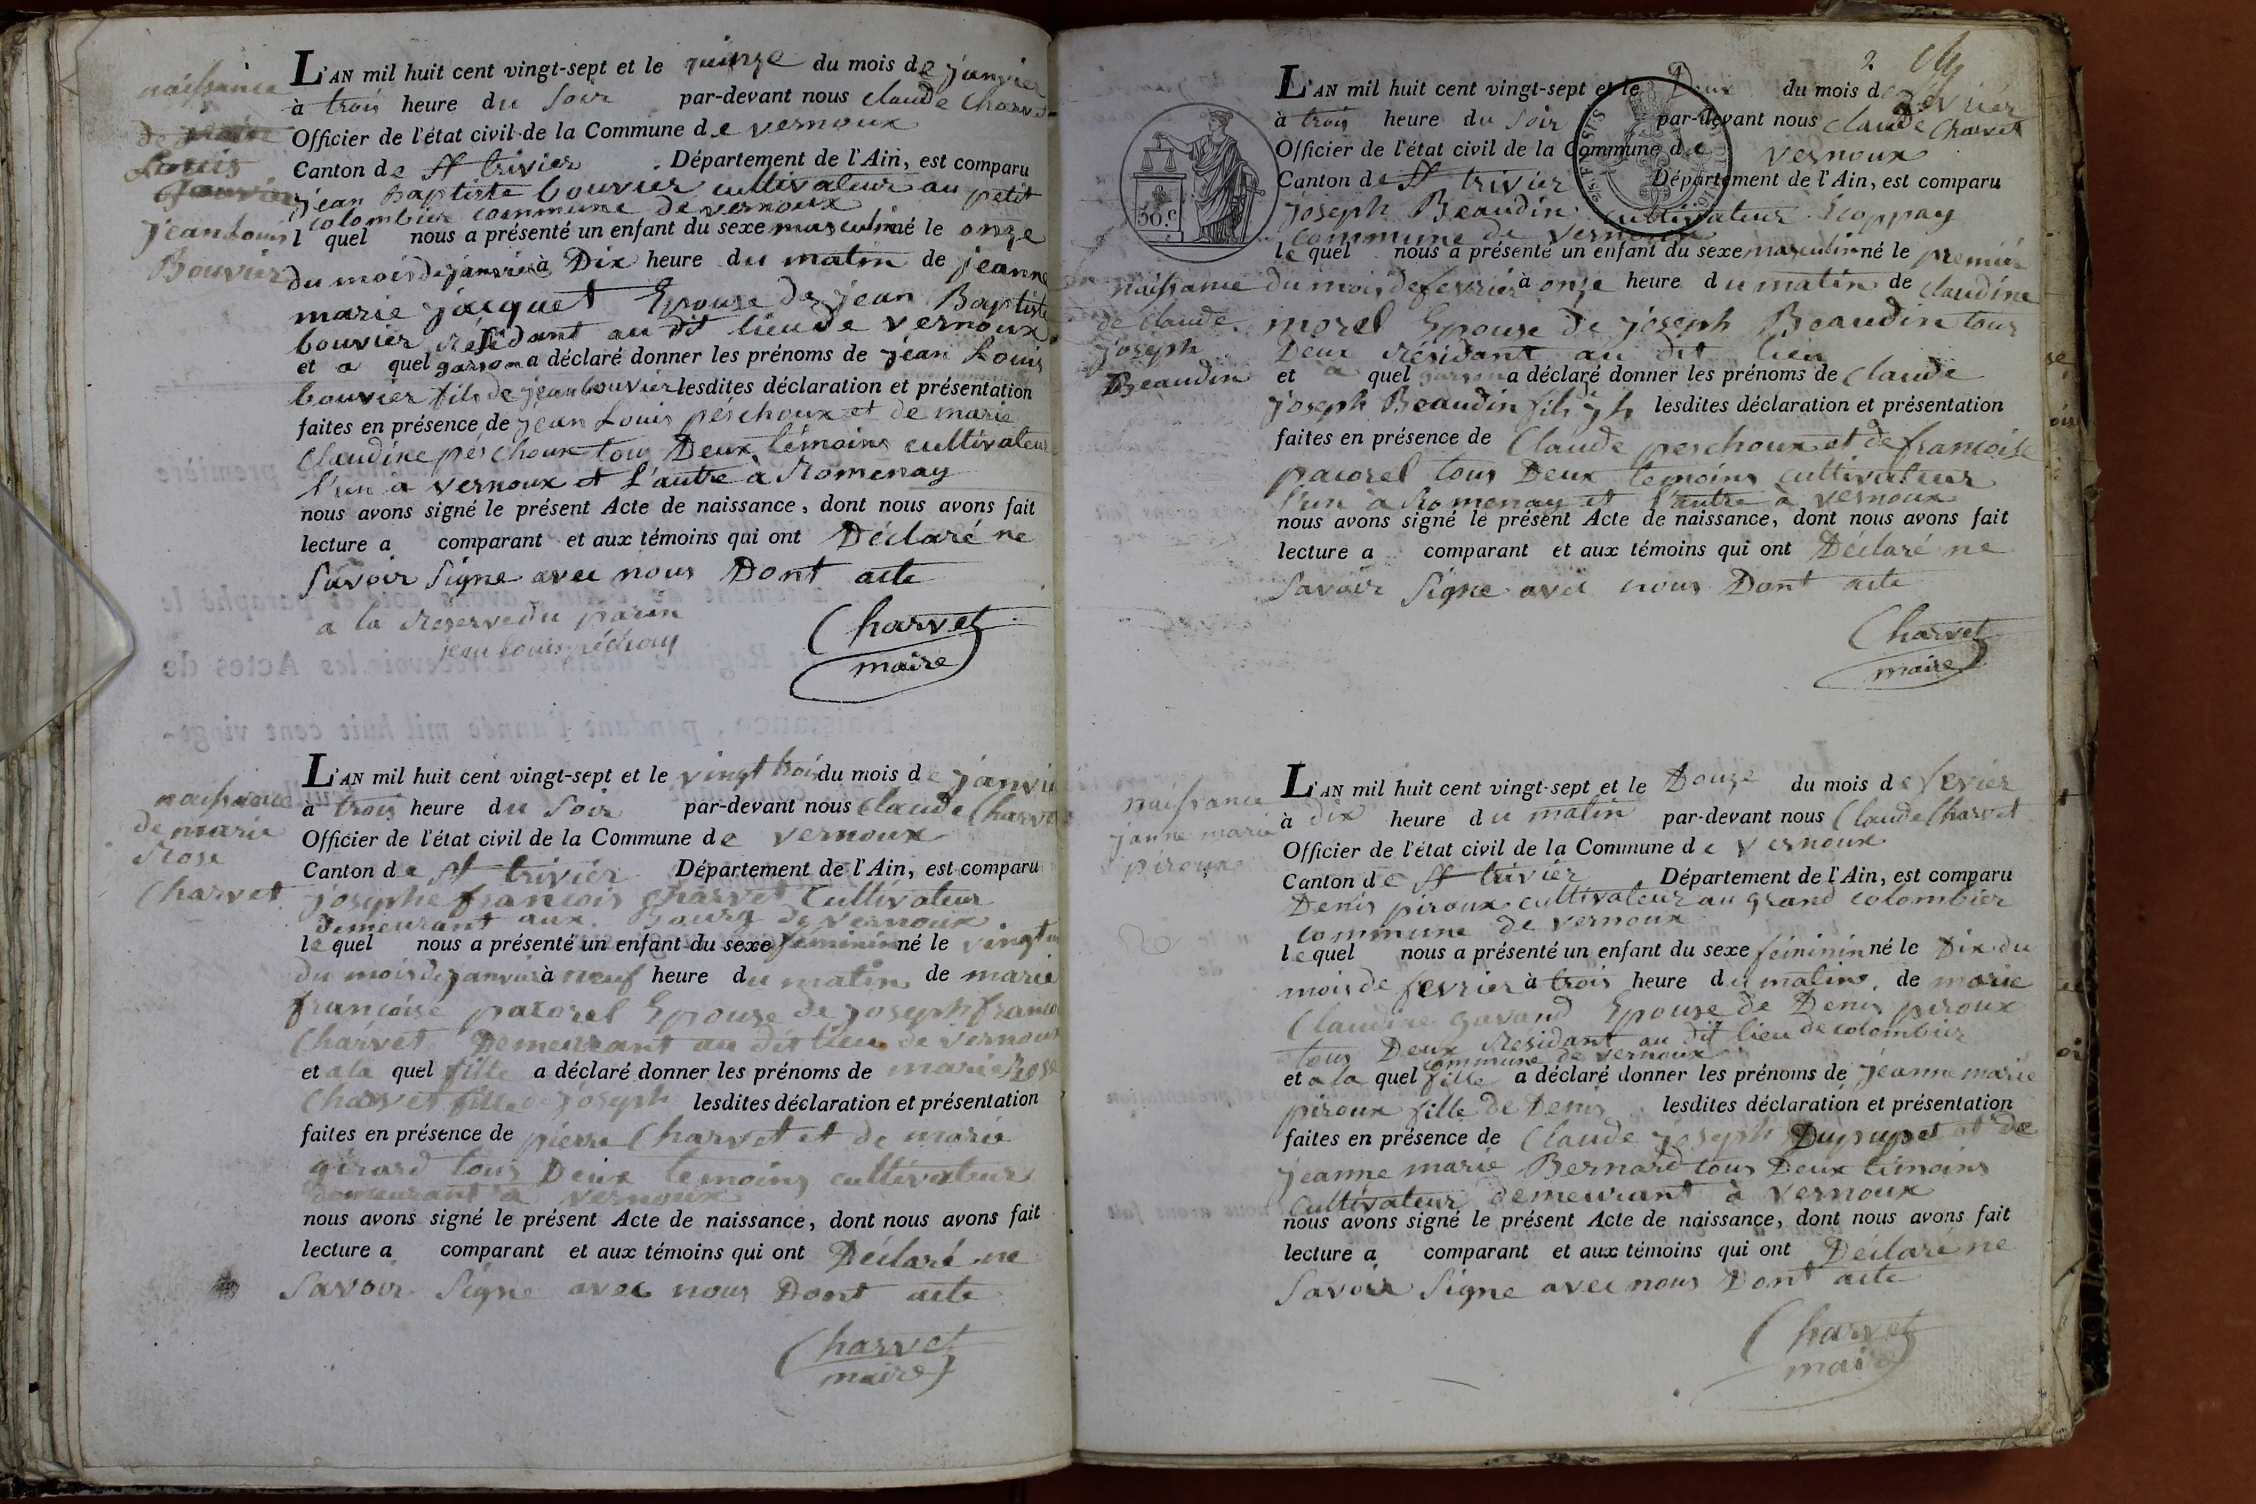 naissance
de marie
Louis
Bouvier
jean Louis
Bouvier
L'AN mil huit cent vingt-sept et le quinze du mois de janvier
à trois heure du soir par-devant nous claude Charvet
Officier de l'état civil de la Commune de vernoux
Canton de St trivier Département de l'Ain, est comparu
jean Baptiste bouvier cultivateur au petit
colombier commune de vernoux
l quel nous a présenté un enfant du sexe masculin né le onze
du mois de janvier à Dix heure du matin de jeanne
marie jacquet Epouse de jean Baptiste
bouvier résidant au dit lieu de vernoux
et a quel garson a déclaré donner les prénoms de jean Louis
bouvier fils de jean bouvier lesdites déclaration et présentation
faites en présence de jean Louis peschoux et de marie
Claudine peschoux tous Deux témoins cultivateur
l'un à vernoux et l'autre à Romenay
nous avons signé le présent Acte de naissance, dont nous avons fait
lecture a comparant et aux témoins qui ont Déclaré ne
savoir signe avec nous Dont acte
a la reserve du parin
jean louis péchoux
Charvet
maire
naissance
de marie
Rose
Charvet
L'AN mil huit cent vingt-sept et le vingt trois du mois de janvier
à trois heure du soir par-devant nous claude Charvet
Officier de l'état civil de la Commune de vernoux
Canton de St trivier Département de l'Ain, est comparu
josephe francois charvet Cultivateur
demeurant aux Bourg de vernoux
le quel nous a présenté un enfant du sexe féminin né le vingt un
du mois de janvier à neuf heure du matin de marie
françoise pacorel Epouse de joseph franco
Charvet Demeurant au dit lieu de vernoux
et a la quel fille a déclaré donner les prénoms de marie Rose
Charvet fille de joseph lesdites déclaration et présentation
faites en présence de pierre Charvet et de marie
girard tous Deux temoins cultivateur
demeurant à vernoux
nous avons signé le présent Acte de naissance, dont nous avons fait
lecture a comparant et aux témoins qui ont Déclaré ne
savoir signe avec nous Dont acte
Charvet
maire
2
50 c.
naissance
de claude
joseph
Beaudin
L'AN mil huit cent vingt-sept et le Deux du mois de février
à trois heure du soir par-devant nous claude Charvet
Officier de l'état civil de la Commune de vernoux
Canton de St trivier Département de l'Ain, est comparu
joseph Beaudin cultivateur Ecoppay
commune de vernoux
le quel nous a présenté un enfant du sexe masculin né le premier
du mois de fevrier à onze heure du matin de claudine
morel Epouse de joseph Beaudin tous
Deux résidant au dit lieu
et a quel garson a déclaré donner les prénoms de claude
joseph Beaudin fils jh lesdites déclaration et présentation
faites en présence de Claude peschoux et de françoise
pacorel tous Deux temoins cultivateur
l'un à Romenay et l'autre à vernoux
nous avons signé le présent Acte de naissance, dont nous avons fait
lecture a comparant et aux témoins qui ont Déclaré ne
savoir signe avec nous Dont acte
Charvet
maire
naissance
janne marie
piroux
L'AN mil huit cent vingt-sept et le Douze du mois de fevier
à dix heure du matin par-devant nous Claude Charvet
Officier de l'état civil de la Commune de vernoux
Canton de St trivier Département de l'Ain, est comparu
Denis piroux cultivateur au grand colombier
commune de vernoux
le quel nous a présenté un enfant du sexe féminin né le Dix du
mois de fevrier à trois heure du matin de marie
Claudine gavand Epouse de Denis piroux
tous Deux résidant au dit lieu de colombier
commune de vernoux
et a la quel fille a déclaré donner les prénoms de jeanne marie
piroux fille de Denis lesdites déclaration et présentation
faites en présence de Claude joseph Dupupet et de
jeanne marie Bernard tous Deux témoins
Cultivateur demeurant à vernoux
nous avons signé le présent Acte de naissance, dont nous avons fait
lecture a comparant et aux témoins qui ont Déclaré ne
savoir signe avec nous Dont acte
Charvet
maire